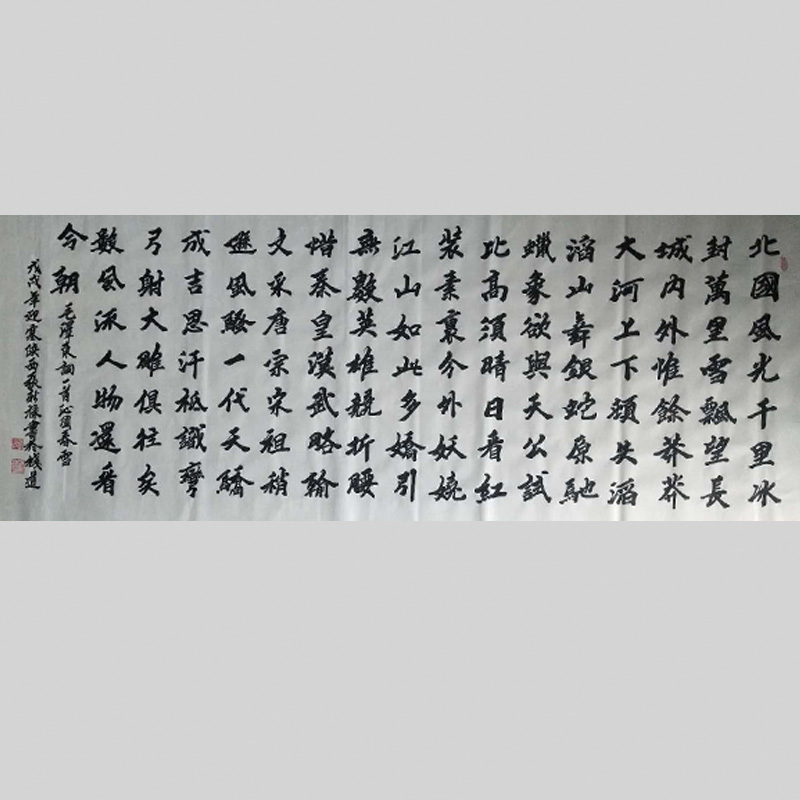 北國風光千里冰
封萬里雪飄望長
城内外惟餘莽莽
大河上下頓失滔
滔山舞銀蛇原馳
蠟象欲與天公試
比高須晴日看紅
装素裹分外妖嬈
江山如此多嬌引
無數英雄競折腰
惜秦皇漢武略輸
文采唐宗宋祖稍
遜風騷一代天驕
成吉思汗祗識彎
弓射大雕俱往矣
數風流人物還看
今朝
毛澤東詞一首沁園春雪
戊戌年迎寒陝西書於棧道